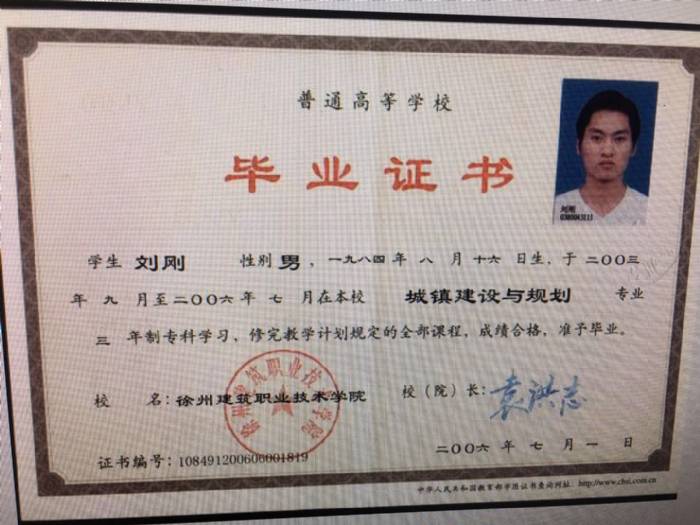 普通高等学校
毕业证书
刘刚
学生 刘刚 性别 男，一九八四年 八 月 十六 日生，于 二〇〇三
年 九 月至二〇〇六年 七 月在本校 城镇建设与规划 专业
三 年制专科学习，修完教学计划规定的全部课程，成绩合格，准予毕业。
校 名：徐州建筑职业技术学院 校（院）长：袁洪志
徐州建筑职业技术学院
二〇〇六 年 七 月 一 日
证书编号：108491200606001819
中华人民共和国教育部学历证书查询网址：http://www.chsi.com.cn